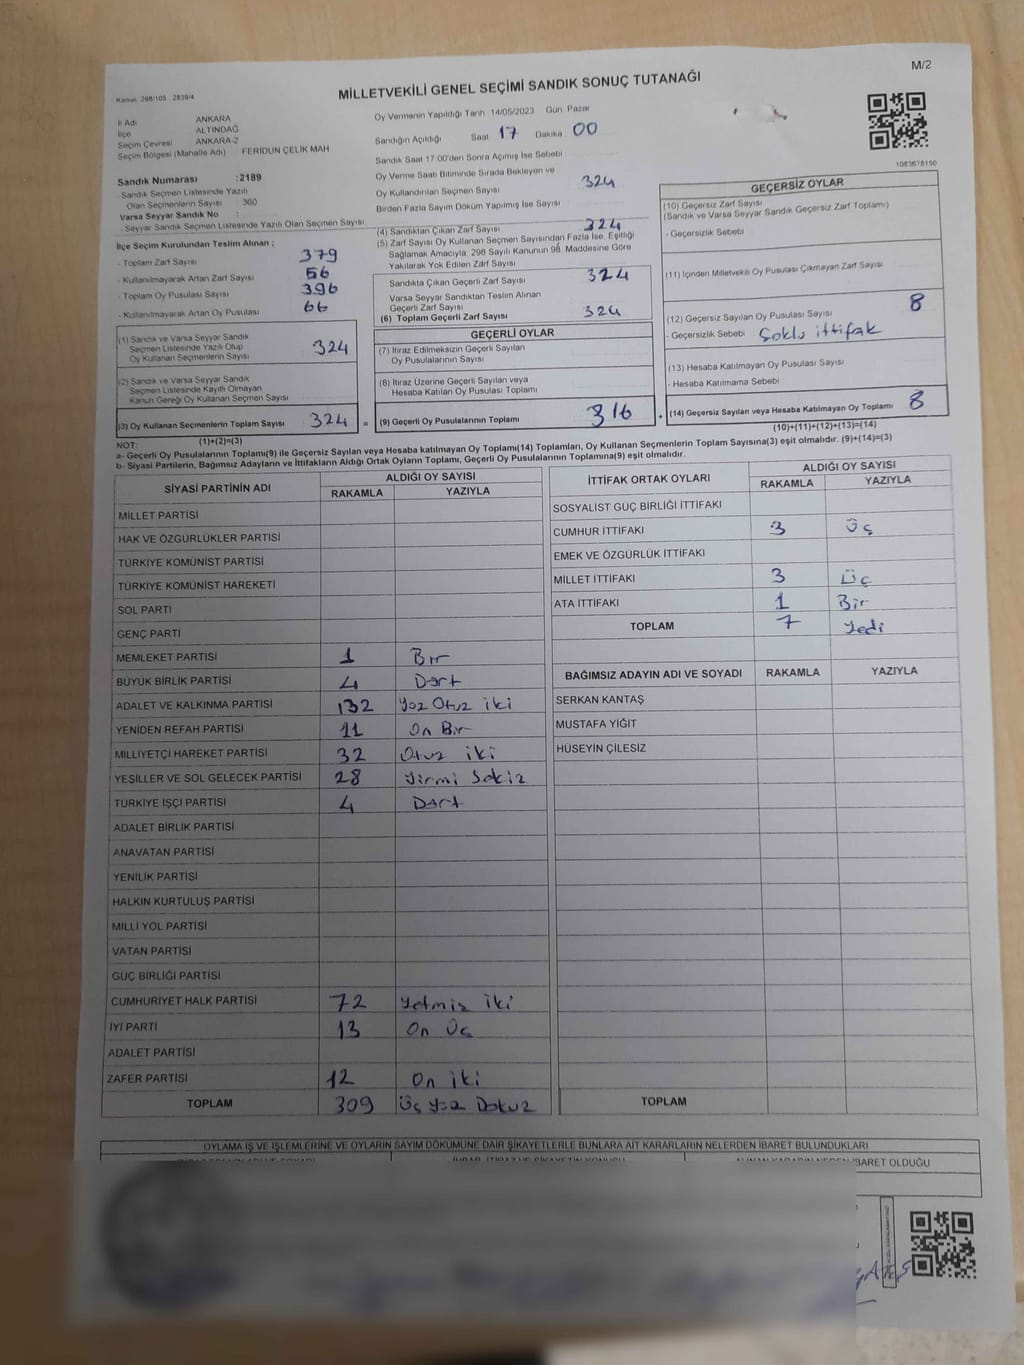 M/2
Kanun: 298/105 , 2839/4
MİLLETVEKİLİ GENEL SEÇİMİ SANDIK SONUÇ TUTANAĞI
İl Adı ANKARA
İlçe ALTINDAĞ
Seçim Çevresi ANKARA-2
Seçim Bölgesi (Mahalle Adı) FERİDUN ÇELİK MAH
Sandık Numarası :2189
- Sandık Seçmen Listesinde Yazılı
Olan Seçmenlerin Sayısı : 360
Varsa Seyyar Sandık No :
- Seyyar Sandık Seçmen Listesinde Yazılı Olan Seçmen Sayısı:
İlçe Seçim Kurulundan Teslim Alınan ;
- Toplam Zarf Sayısı 379
- Kullanılmayarak Artan Zarf Sayısı 56
- Toplam Oy Pusulası Sayısı 396
- Kullanılmayarak Artan Oy Pusulası 66
(1) Sandık ve Varsa Seyyar Sandık
Seçmen Listesinde Yazılı Olup
Oy Kullanan Seçmenlerin Sayısı 324
(2) Sandık ve Varsa Seyyar Sandık
Seçmen Listesinde Kayıtlı Olmayan
Kanun Gereği Oy Kullanan Seçmen Sayısı
(3) Oy Kullanan Seçmenlerin Toplam Sayısı 324 =
Oy Vermenin Yapıldığı Tarih 14/05/2023 Gün Pazar
Sandığın Açıldığı Saat 17 Dakika 00
Sandık Saat 17.00'den Sonra Açımış İse Sebebi
Oy Verme Saati Bitiminde Sırada Bekleyen ve
Oy Kullandırılan Seçmen Sayısı 324
Birden Fazla Sayım Döküm Yapılmış İse Sayısı
(4) Sandıktan Çıkan Zarf Sayısı 324
(5) Zarf Sayısı Oy Kullanan Seçmen Sayısından Fazla İse, Eşitliği
Sağlamak Amacıyla, 298 Sayılı Kanunun 98. Maddesine Göre
Yakılarak Yok Edilen Zarf Sayısı
Sandıkta Çıkan Geçerli Zarf Sayısı 324
Varsa Seyyar Sandıktan Teslim Alınan
Geçerli Zarf Sayısı
(6) Toplam Geçerli Zarf Sayısı 324
GEÇERLİ OYLAR
(7) İtiraz Edilmeksizin Geçerli Sayılan
Oy Pusulalarının Sayısı
(8) İtiraz Üzerine Geçerli Sayılan veya
Hesaba Katılan Oy Pusulası Toplamı
(9) Geçerli Oy Pusulalarının Toplamı 316 +
1083678150
GEÇERSİZ OYLAR
(10) Geçersiz Zarf Sayısı
(Sandık ve Varsa Seyyar Sandık Geçersiz Zarf Toplamı)
- Geçersizlik Sebebi
(11) İçinden Milletvekili Oy Pusulası Çıkmayan Zarf Sayısı
(12) Geçersiz Sayılan Oy Pusulası Sayısı 8
- Geçersizlik Sebebi Çoklu ittifak
(13) Hesaba Katılmayan Oy Pusulası Sayısı
- Hesaba Katılmama Sebebi
(14) Geçersiz Sayılan veya Hesaba Katılmayan Oy Toplamı 8
(10)+(11)+(12)+(13)=(14)
NOT: (1)+(2)=(3)
a- Geçerli Oy Pusulalarının Toplamı(9) ile Geçersiz Sayılan veya Hesaba katılmayan Oy Toplamı(14) Toplamları, Oy Kullanan Seçmenlerin Toplam Sayısına(3) eşit olmalıdır. (9)+(14)=(3)
b- Siyasi Partilerin, Bağımsız Adayların ve İttifakların Aldığı Ortak Oyların Toplamı, Geçerli Oy Pusulalarının Toplamına(9) eşit olmalıdır.
SİYASİ PARTİNİN ADI ALDIĞI OY SAYISI
RAKAMLA YAZIYLA
MİLLET PARTİSİ
HAK VE ÖZGÜRLÜKLER PARTİSİ
TÜRKİYE KOMÜNİST PARTİSİ
TÜRKİYE KOMÜNİST HAREKETİ
SOL PARTİ
GENÇ PARTİ
MEMLEKET PARTİSİ 1 Bir
BÜYÜK BİRLİK PARTİSİ 4 Dört
ADALET VE KALKINMA PARTİSİ 132 Yüz Otuz iki
YENİDEN REFAH PARTİSİ 11 On Bir
MİLLİYETÇİ HAREKET PARTİSİ 32 Otuz iki
YEŞİLLER VE SOL GELECEK PARTİSİ 28 Yirmi Sekiz
TÜRKİYE İŞÇİ PARTİSİ 4 Dört
ADALET BİRLİK PARTİSİ
ANAVATAN PARTİSİ
YENİLİK PARTİSİ
HALKIN KURTULUŞ PARTİSİ
MİLLİ YOL PARTİSİ
VATAN PARTİSİ
GÜÇ BİRLİĞİ PARTİSİ
CUMHURİYET HALK PARTİSİ 72 Yetmiş iki
İYİ PARTİ 13 On Üç
ADALET PARTİSİ
ZAFER PARTİSİ 12 On iki
TOPLAM 309 Üç Yüz Dokuz
İTTİFAK ORTAK OYLARI ALDIĞI OY SAYISI
RAKAMLA YAZIYLA
SOSYALİST GÜÇ BİRLİĞİ İTTİFAKI
CUMHUR İTTİFAKI 3 Üç
EMEK VE ÖZGÜRLÜK İTTİFAKI
MİLLET İTTİFAKI 3 Üç
ATA İTTİFAKI 1 Bir
TOPLAM 7 Yedi
BAĞIMSIZ ADAYIN ADI VE SOYADI RAKAMLA YAZIYLA
SERKAN KANTAŞ
MUSTAFA YİĞİT
HÜSEYİN ÇİLESİZ
TOPLAM
OYLAMA İŞ VE İŞLEMLERİNE VE OYLARIN SAYIM DÖKÜMÜNE DAİR ŞİKAYETLERLE BUNLARA AİT KARARLARIN NELERDEN İBARET BULUNDUKLARI
İHBAR, İTİRAZ VE ŞİKAYETİN KONUSU ALINAN KARARIN NEDEN İBARET OLDUĞU